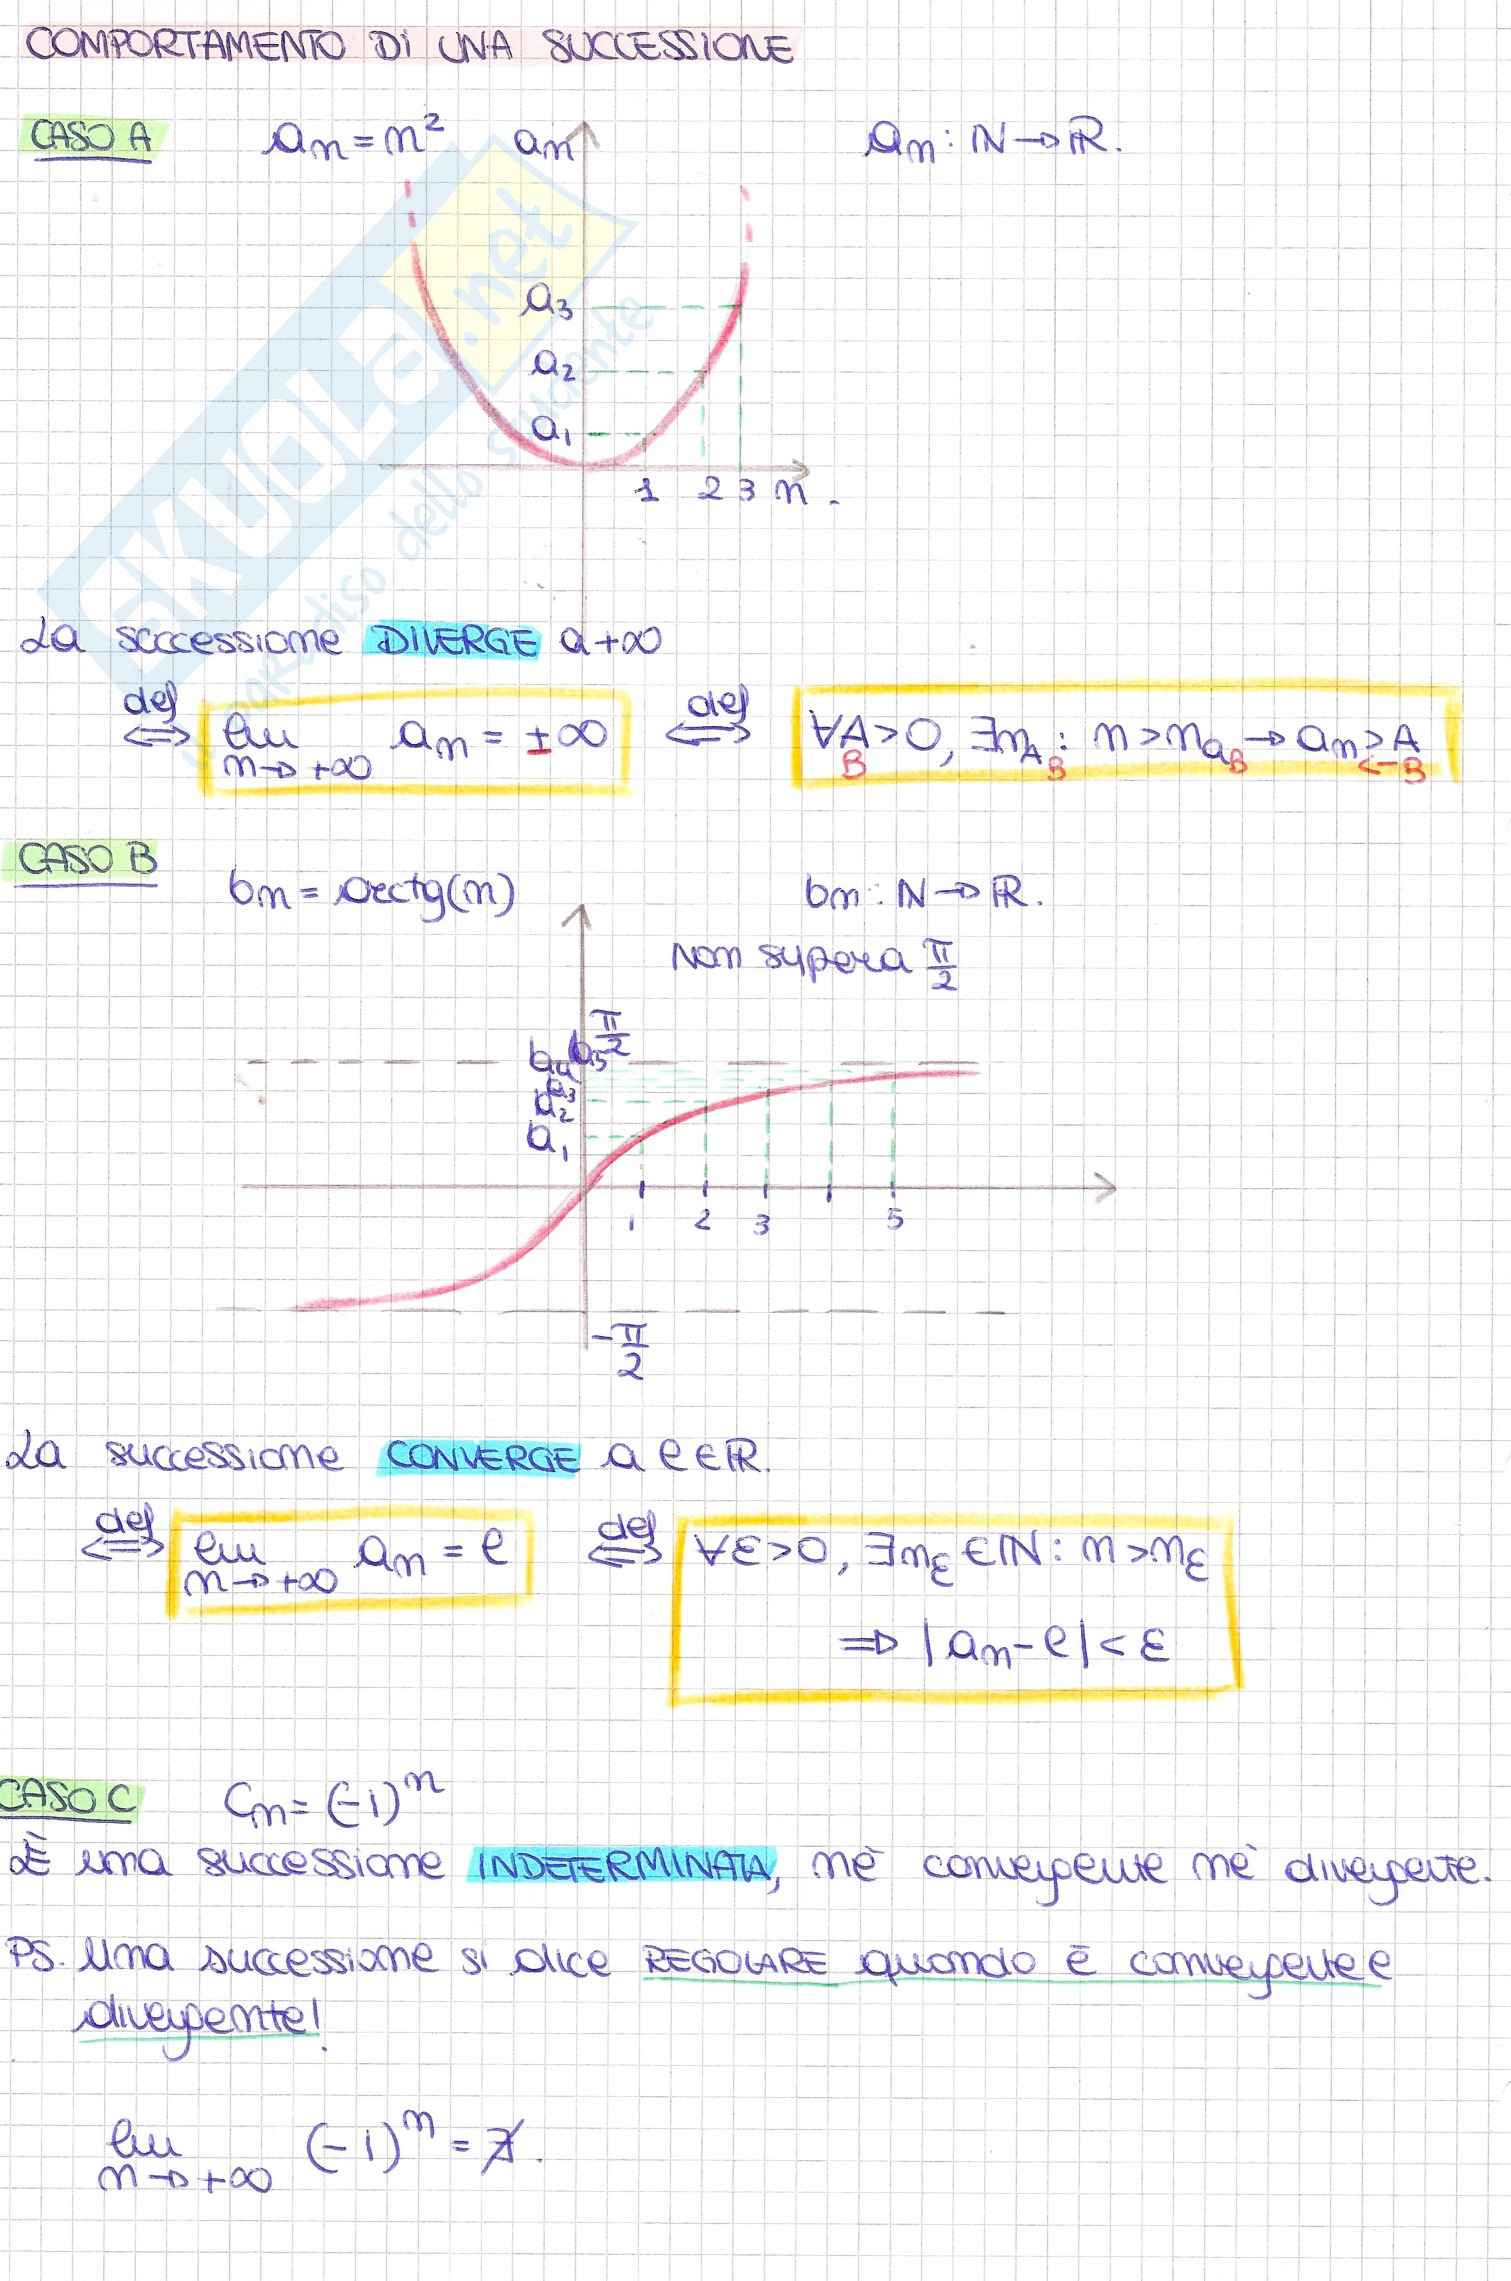 COMPORTAMENTO DI UNA SUCCESSIONE
CASO A aₙ = n² aₙ aₙ : ℕ → ℝ.
a₃
a₂
a₁
1 2 3 n.
SKUOLA.net
paradiso dello studente
La successione DIVERGE a +∞
def ⟺ lim n→+∞ aₙ = ±∞ def ⟺ ∀A>0, ∃n_A : n > n_a → aₙ > A
B B B <-B
CASO B
bₙ = arctg(n) bₙ : ℕ → ℝ.
Non supera π/2
π/2
b₄ b₅
a₃
a₂
a₁
1 2 3 5
-π/2
La successione CONVERGE a ℓ∈ℝ.
def ⟺ lim n→+∞ aₙ = ℓ def ⟺ ∀ε>0, ∃n_ε ∈ ℕ : n > n_ε
⟹ |aₙ - ℓ| < ε
CASO C Cₙ = (-1)ⁿ
È una successione INDETERMINATA, nè convergente nè divergente.
PS. Una successione si dice REGOLARE quando è convergente e
divergente!
lim n→+∞ (-1)ⁿ = ∄.